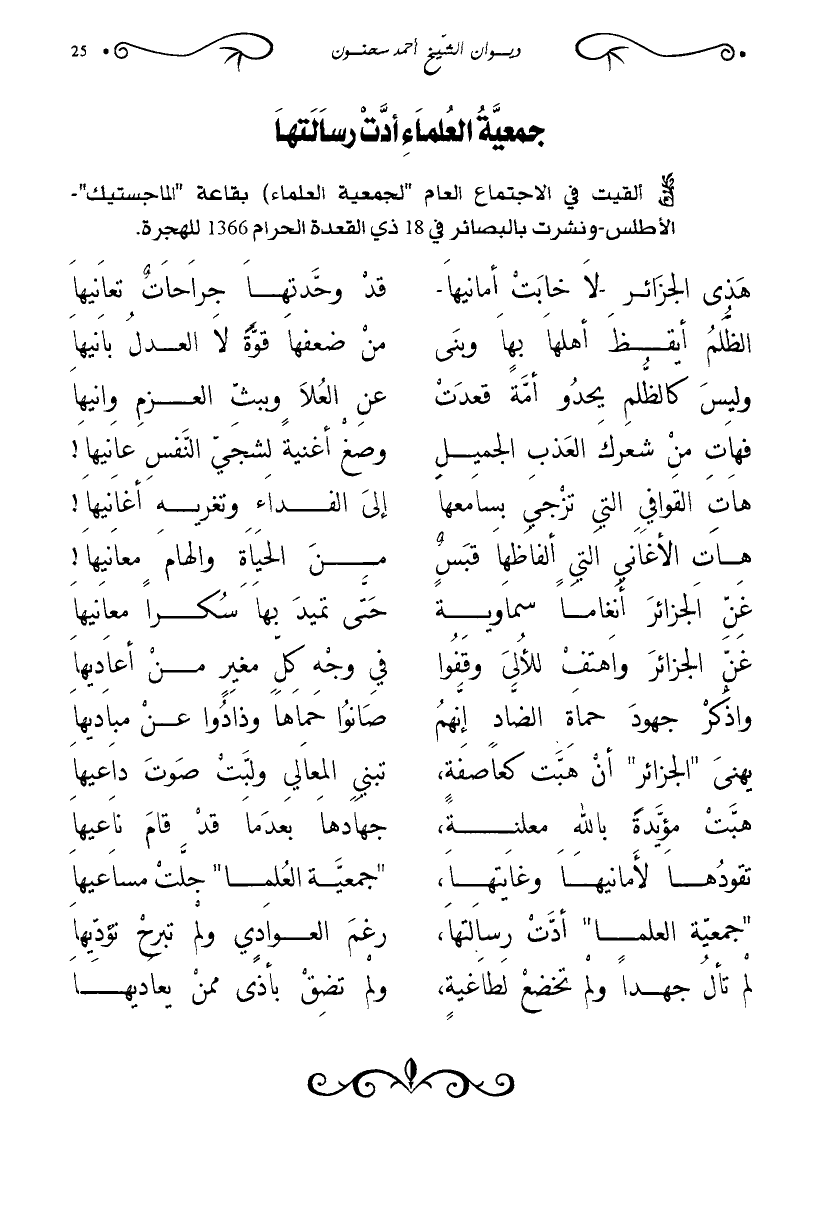 25 ديوان الشيخ أحمد سحنون
جمعيَّةُ العُلماَءِ أدَّتْ رساَلَتهاَ
ألقيت في الاجتماع العام "لجمعية العلماء) بقاعة "الماجستيك"-
الأطلس-ونشرت بالبصائر في 18 ذي القعدة الحرام 1366 للهجرة.
هَذِى الجزَائر -لاَ خابَتْ أمانيهاَ- قدْ وحَّدتهاَ جراحاتٌ تعانيهاَ
الظُّلمُ أيقظَ أهلهاَ بهاَ وبنَى منْ ضعفهاَ قوَّةً لاَ العدلُ بانيهاَ
وليسَ كالظُّلمِ يحدُو أمَّةً قعدَتْ عنِ العُلاَ ويبثّ العزمِ وانيهاَ
فهاتِ منْ شعرك العَذب الجميلِ وصغْ أغنيةً لشجيّ النَّفسِ عانيهاَ!
هاتِ القوافِي التِي تزْجيِ بسامعهاَ إلىَ الفداءِ وتغريهِ أغانيهاَ!
هاتِ الأغانِي التيِ ألفاظهاَ قبَسٌ منَ الحيَاةِ والهامِ معانيهاَ!
غنِّ الجزائرَ أنغاماً سماويةً حتَّى تميدَ بهاَ سُكراً معانيهاَ
غنِّ الجزائرَ واهتفْ للأُلىَ وقفُوا فيِ وجْهِ كلِّ مغيرٍ منْ أعاديهاَ
واذكرْ جهودَ حماةِ الضادِ إنهمُ صَانوُا حماَهاَ وذادُوا عنْ مباديهاَ
يهنىَ "الجزائر" أنْ هبَّت كعاَصفةٍ، تبنيِ المعاليِ ولبَّتْ صَوتَ داعيهاَ
هبَّتْ مؤيَّدةً باللهِ معلنةً، جهادهاَ بعدَماَ قدْ قامَ ناعيهاَ
تقودُهاَ لأمانيهاَ وغايتهاَ، "جمعيَّة العُلماَ" جلَّتْ مساعيهاَ
"جمعيّة العلماَ" أدَّتْ رسالتَهاَ، رغمَ العواديِ ولمْ تبرحْ تؤدّيهاَ
لمْ تألُ جهداً ولمْ تخضعْ لطاغيةٍ، ولمْ تضقْ بأذَى ممنْ يعاديهاَ